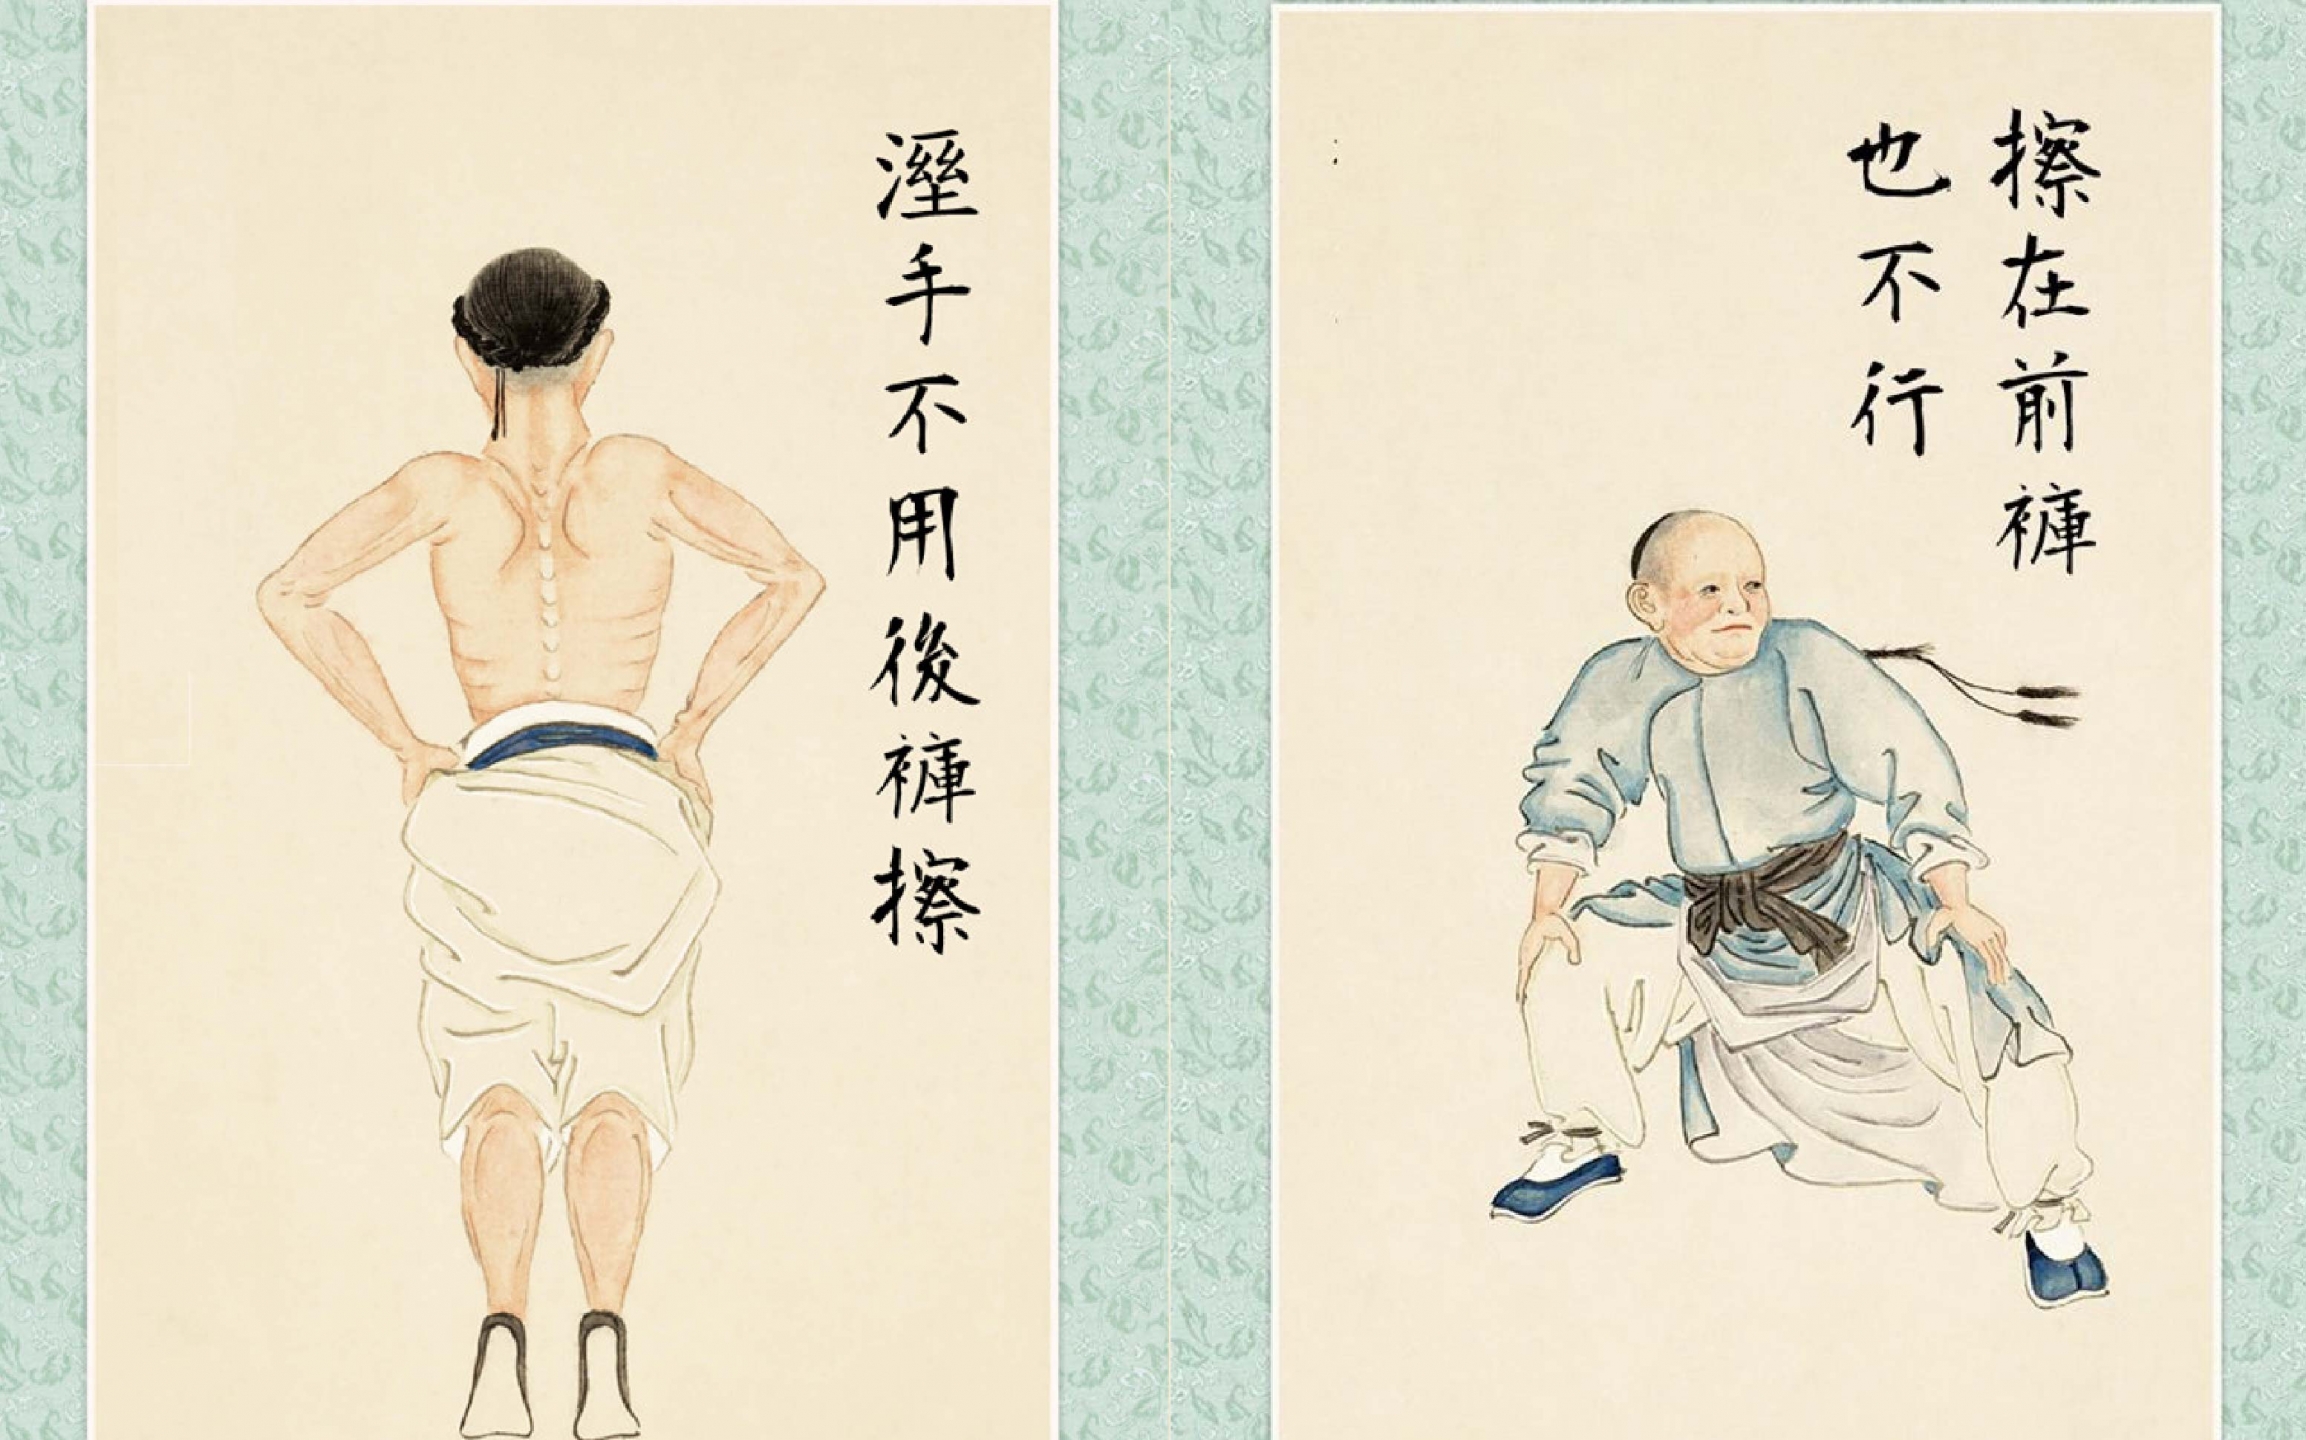 溼手不用後褲擦
擦在前褲
也不行